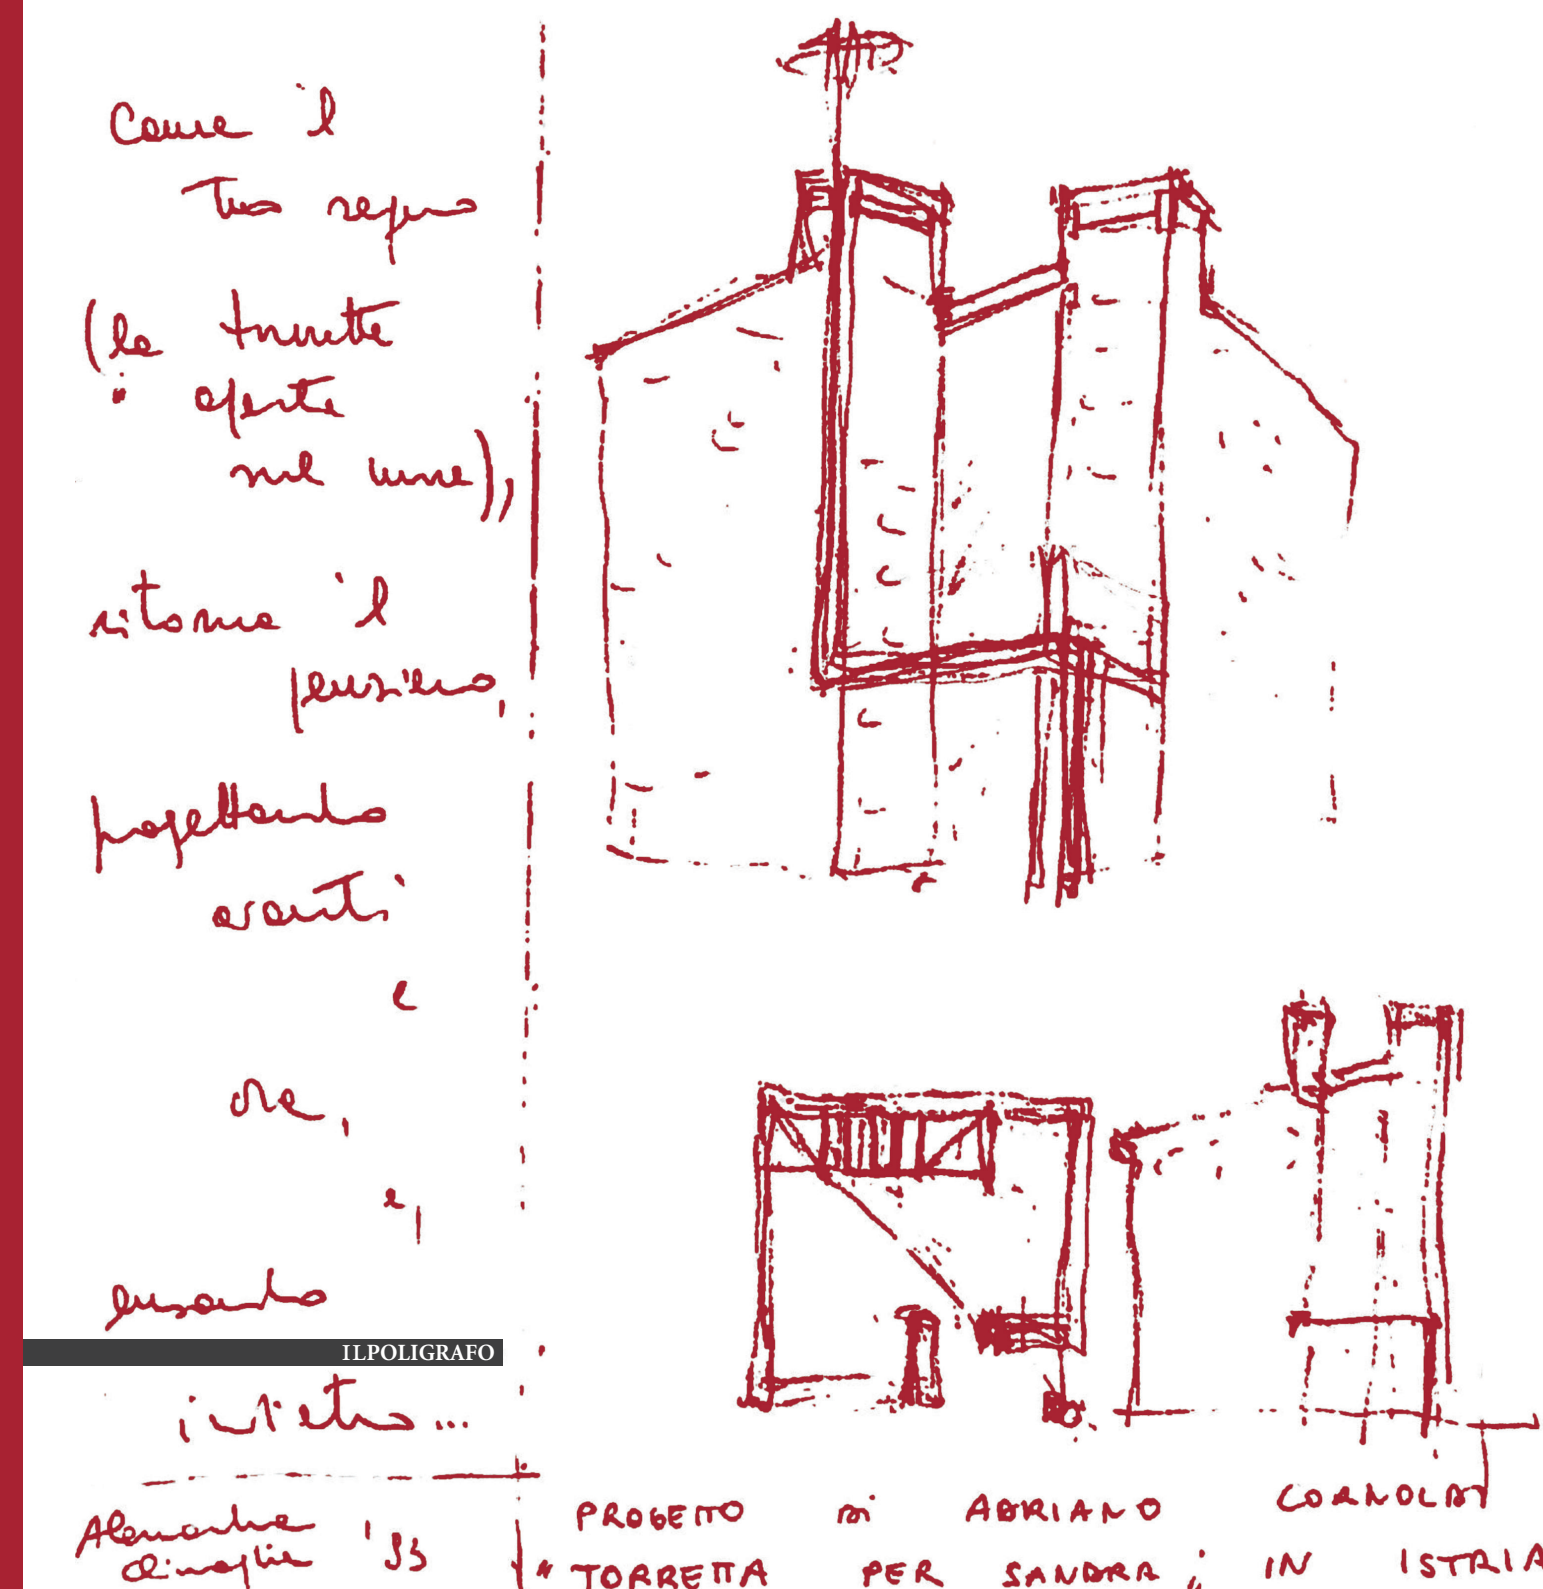 Come il
tuo segno
(la torretta
aperta
sul mare),
ritorna il
pensiero,
progettando
avanti
e
ora,
e,
pensando
ILPOLIGRAFO
indietro...
PROGETTO DI ADRIANO CORNOLDI
"TORRETTA PER SANDRA", IN ISTRIA